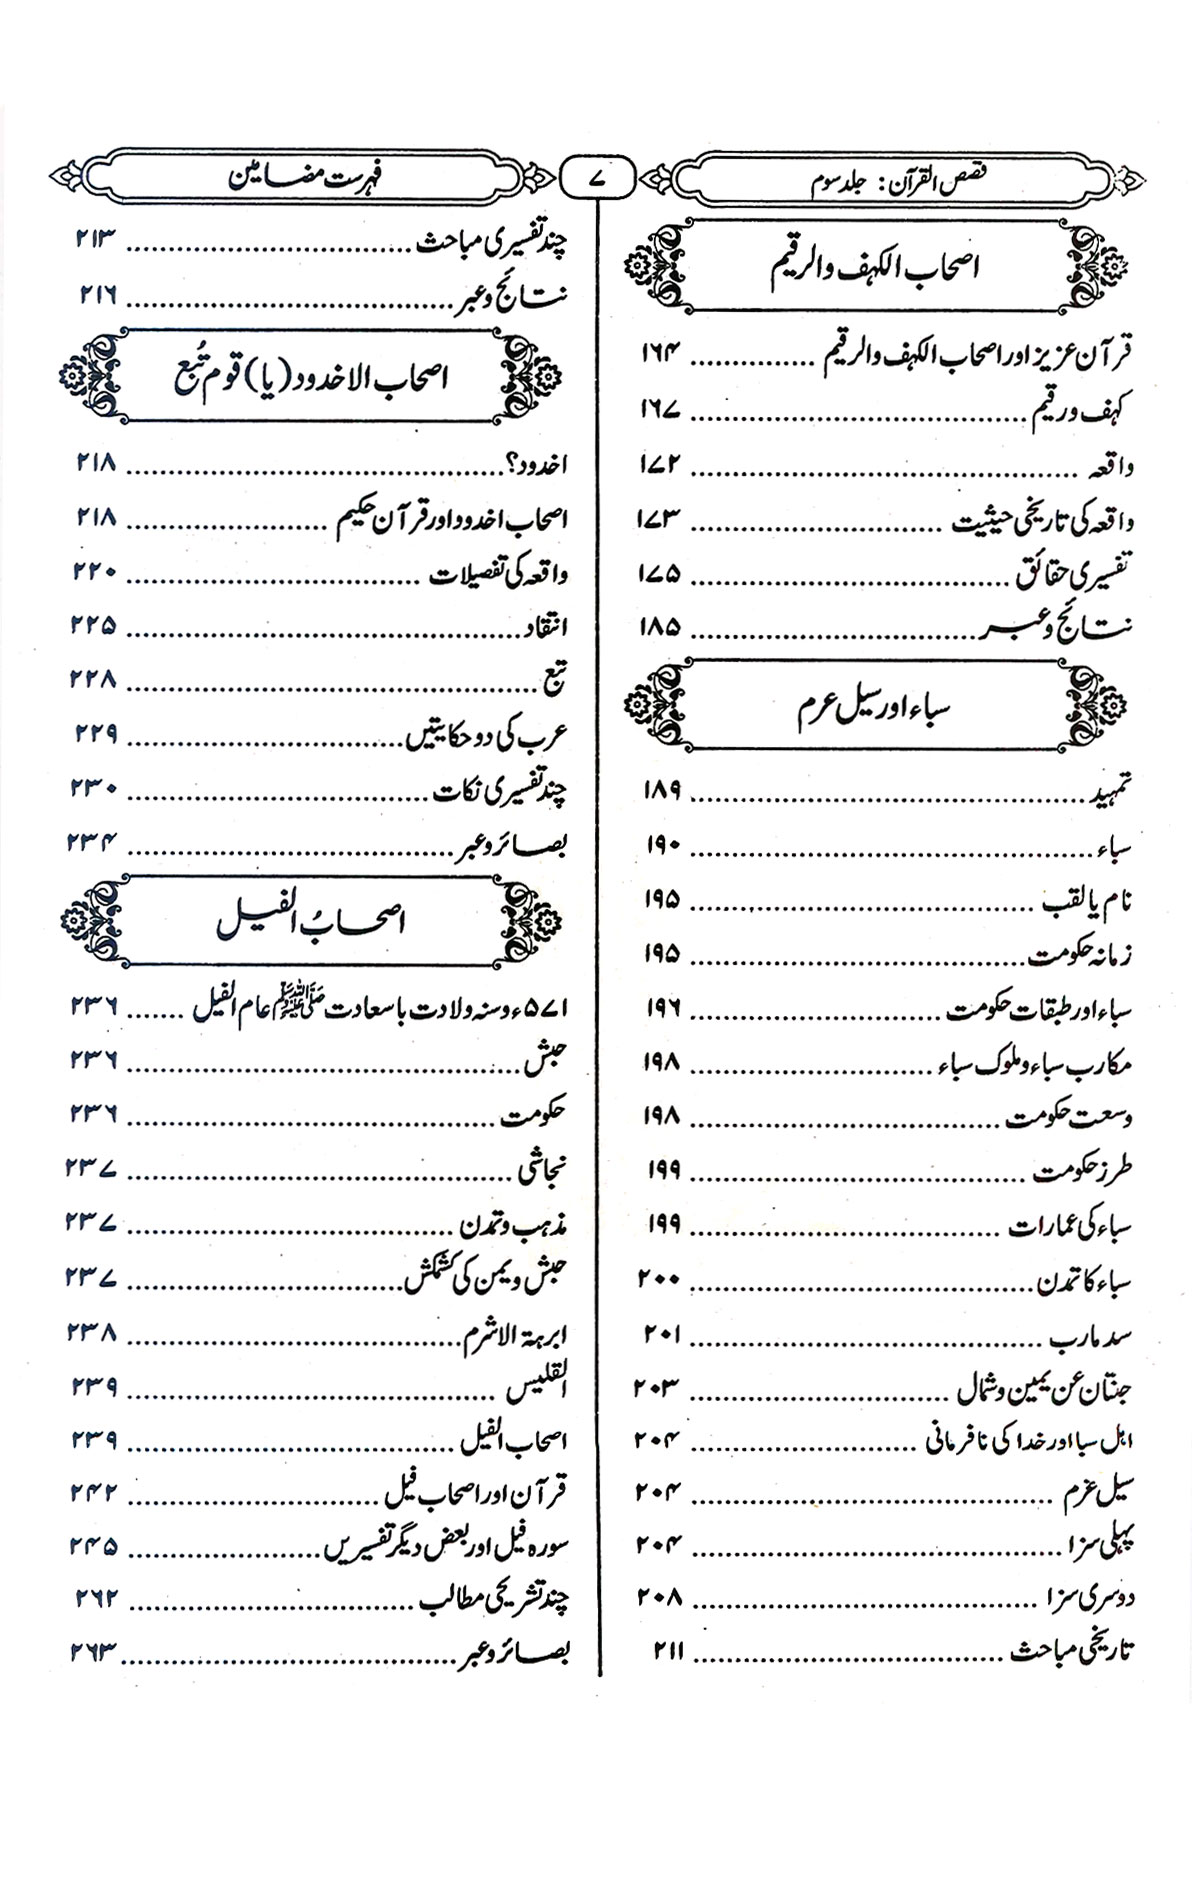 قصص القرآن: جلد سوم
۷
فہرست مضامین
اصحاب الکہف والرقیم
قرآن عزیز اور اصحاب الکہف والرقیم ............... ۱۶۴
کہف ورقیم ............... ۱۶۷
واقعہ ............... ۱۷۲
واقعہ کی تاریخی حیثیت ............... ۱۷۳
تفسیری حقائق ............... ۱۷۵
نتائج وعبر ............... ۱۸۵
سباء اور سیل عرم
تمہید ............... ۱۸۹
سباء ............... ۱۹۰
نام یا لقب ............... ۱۹۵
زمانہ حکومت ............... ۱۹۵
سباء اور طبقات حکومت ............... ۱۹۶
مکارب سباء وملوک سباء ............... ۱۹۸
وسعت حکومت ............... ۱۹۸
طرز حکومت ............... ۱۹۹
سباء کی عمارات ............... ۱۹۹
سباء کا تمدن ............... ۲۰۰
سد مارب ............... ۲۰۱
جنتان عن یمین وشمال ............... ۲۰۳
اہل سبا اور خدا کی نافرمانی ............... ۲۰۴
سیل عرم ............... ۲۰۴
پہلی سزا ............... ۲۰۴
دوسری سزا ............... ۲۰۸
تاریخی مباحث ............... ۲۱۱
چند تفسیری مباحث ............... ۲۱۳
نتائج وعبر ............... ۲۱۶
اصحاب الاخدود (یا) قوم تُبع
اخدود؟ ............... ۲۱۸
اصحاب اخدود اور قرآن حکیم ............... ۲۱۸
واقعہ کی تفصیلات ............... ۲۲۰
انتقاد ............... ۲۲۵
تبع ............... ۲۲۸
عرب کی دو حکایتیں ............... ۲۲۹
چند تفسیری نکات ............... ۲۳۰
بصائر وعبر ............... ۲۳۴
اصحابُ الفیل
۵۷۱ء وسنہ ولادت باسعادت ﷺ عام الفیل ....... ۲۳۶
حبش ............... ۲۳۶
حکومت ............... ۲۳۶
نجاشی ............... ۲۳۷
مذہب وتمدن ............... ۲۳۷
حبش ویمن کی کشمکش ............... ۲۳۷
ابرہۃ الاشرم ............... ۲۳۸
القلیس ............... ۲۳۹
اصحاب الفیل ............... ۲۳۹
قرآن اور اصحاب فیل ............... ۲۴۲
سورہ فیل اور بعض دیگر تفسیریں ............... ۲۴۵
چند تشریحی مطالب ............... ۲۶۲
بصائر وعبر ............... ۲۶۳